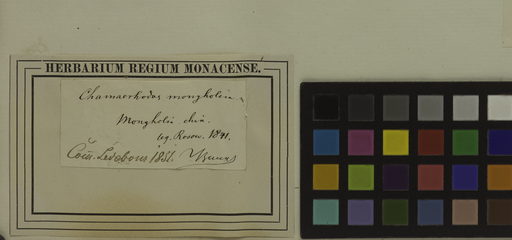 HERBARIUM REGIUM MONACENSE.
Chamaerhodos mongholica
Mongholia chin.
leg. Rosow. 1841.
Com. Ledebour 1851.